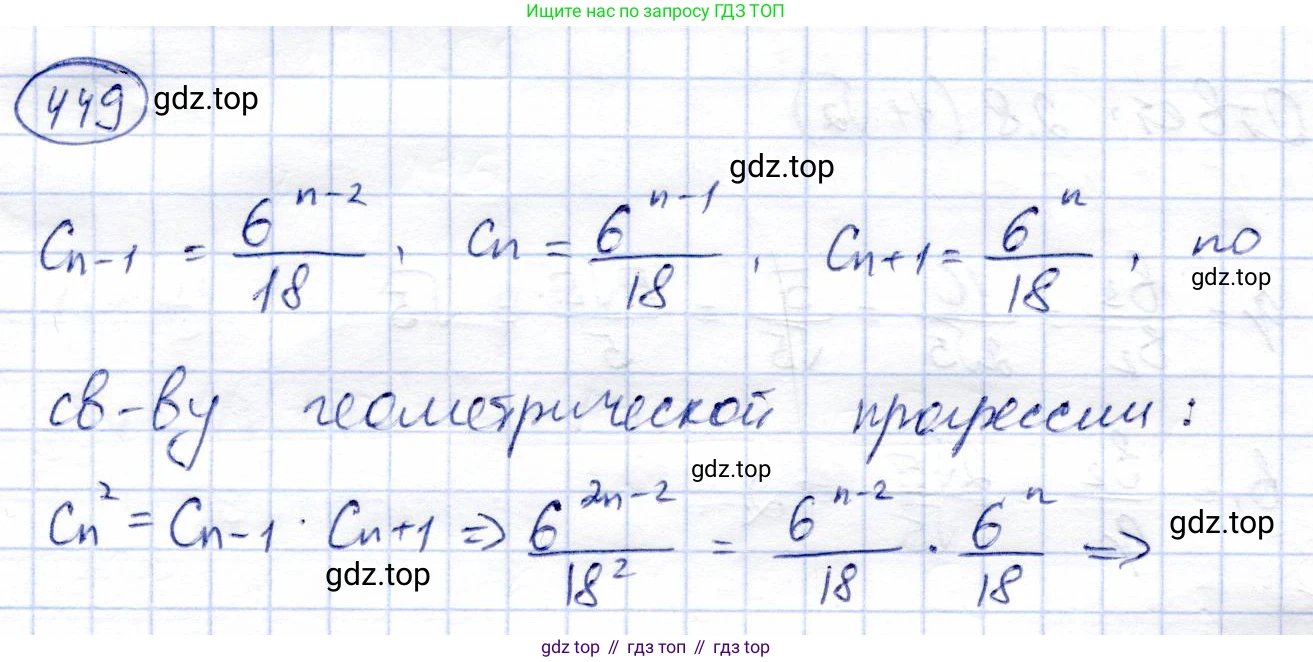 Ищите нас по запросу ГДЗ ТОП
449 gdz.top
gdz.top
Cn-1 = 6^(n-2)/18, Cn = 6^(n-1)/18, Cn+1 = 6^n/18, по
gdz.top
св-ву геометрической прогрессии:
gdz.top
Cn² = Cn-1 · Cn+1 => 6^(2n-2)/18² = 6^(n-2)/18 · 6^n/18 =>
gdz.top
gdz.top
gdz top // гдз топ // gdz top